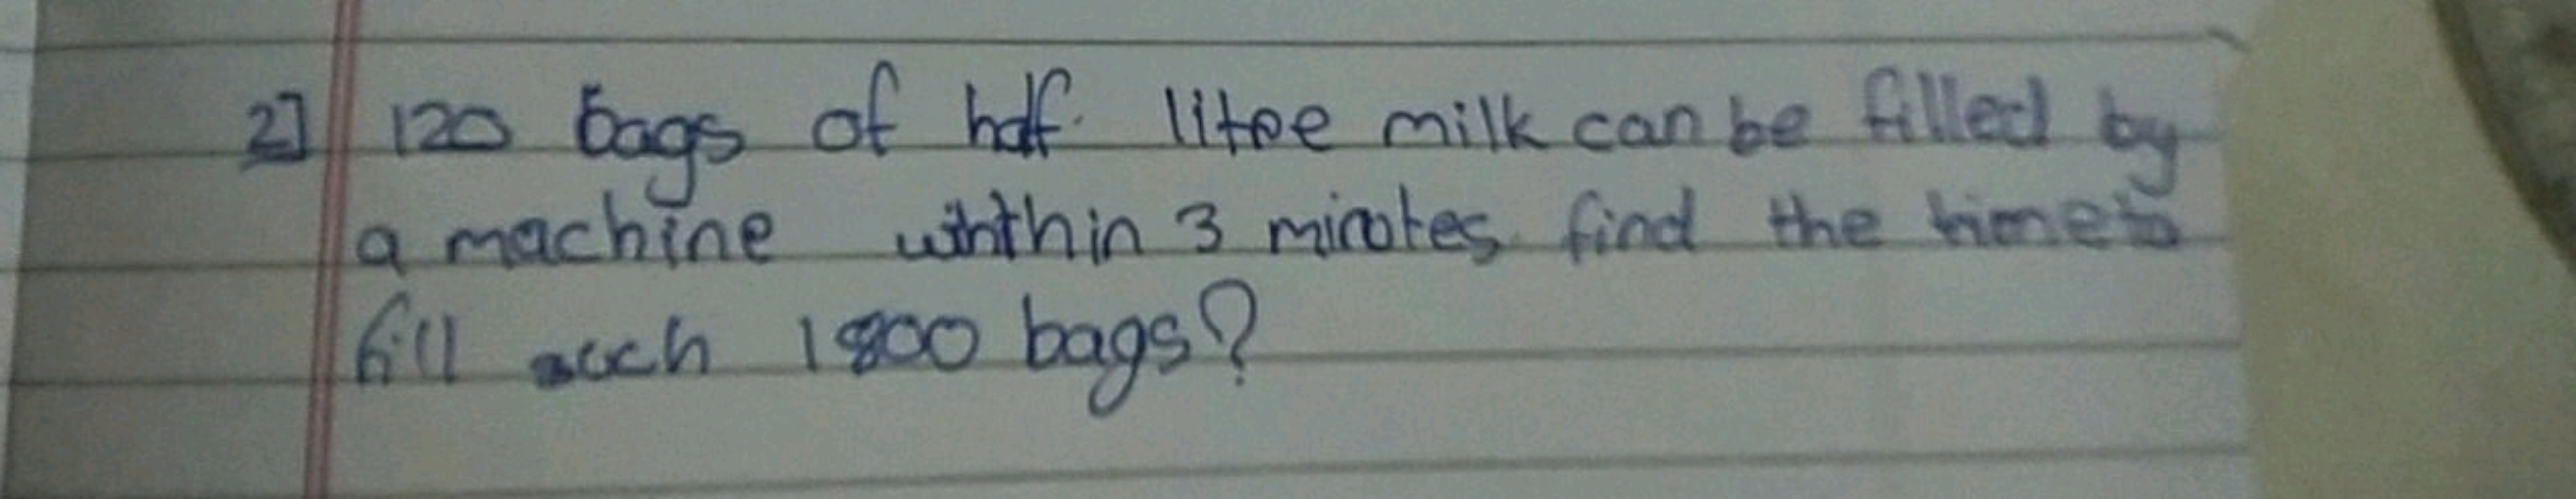 2] 120 bags of half litre milk can be filled by
a machine withthin 3 minutes find the time to
fill such 1800 bags?